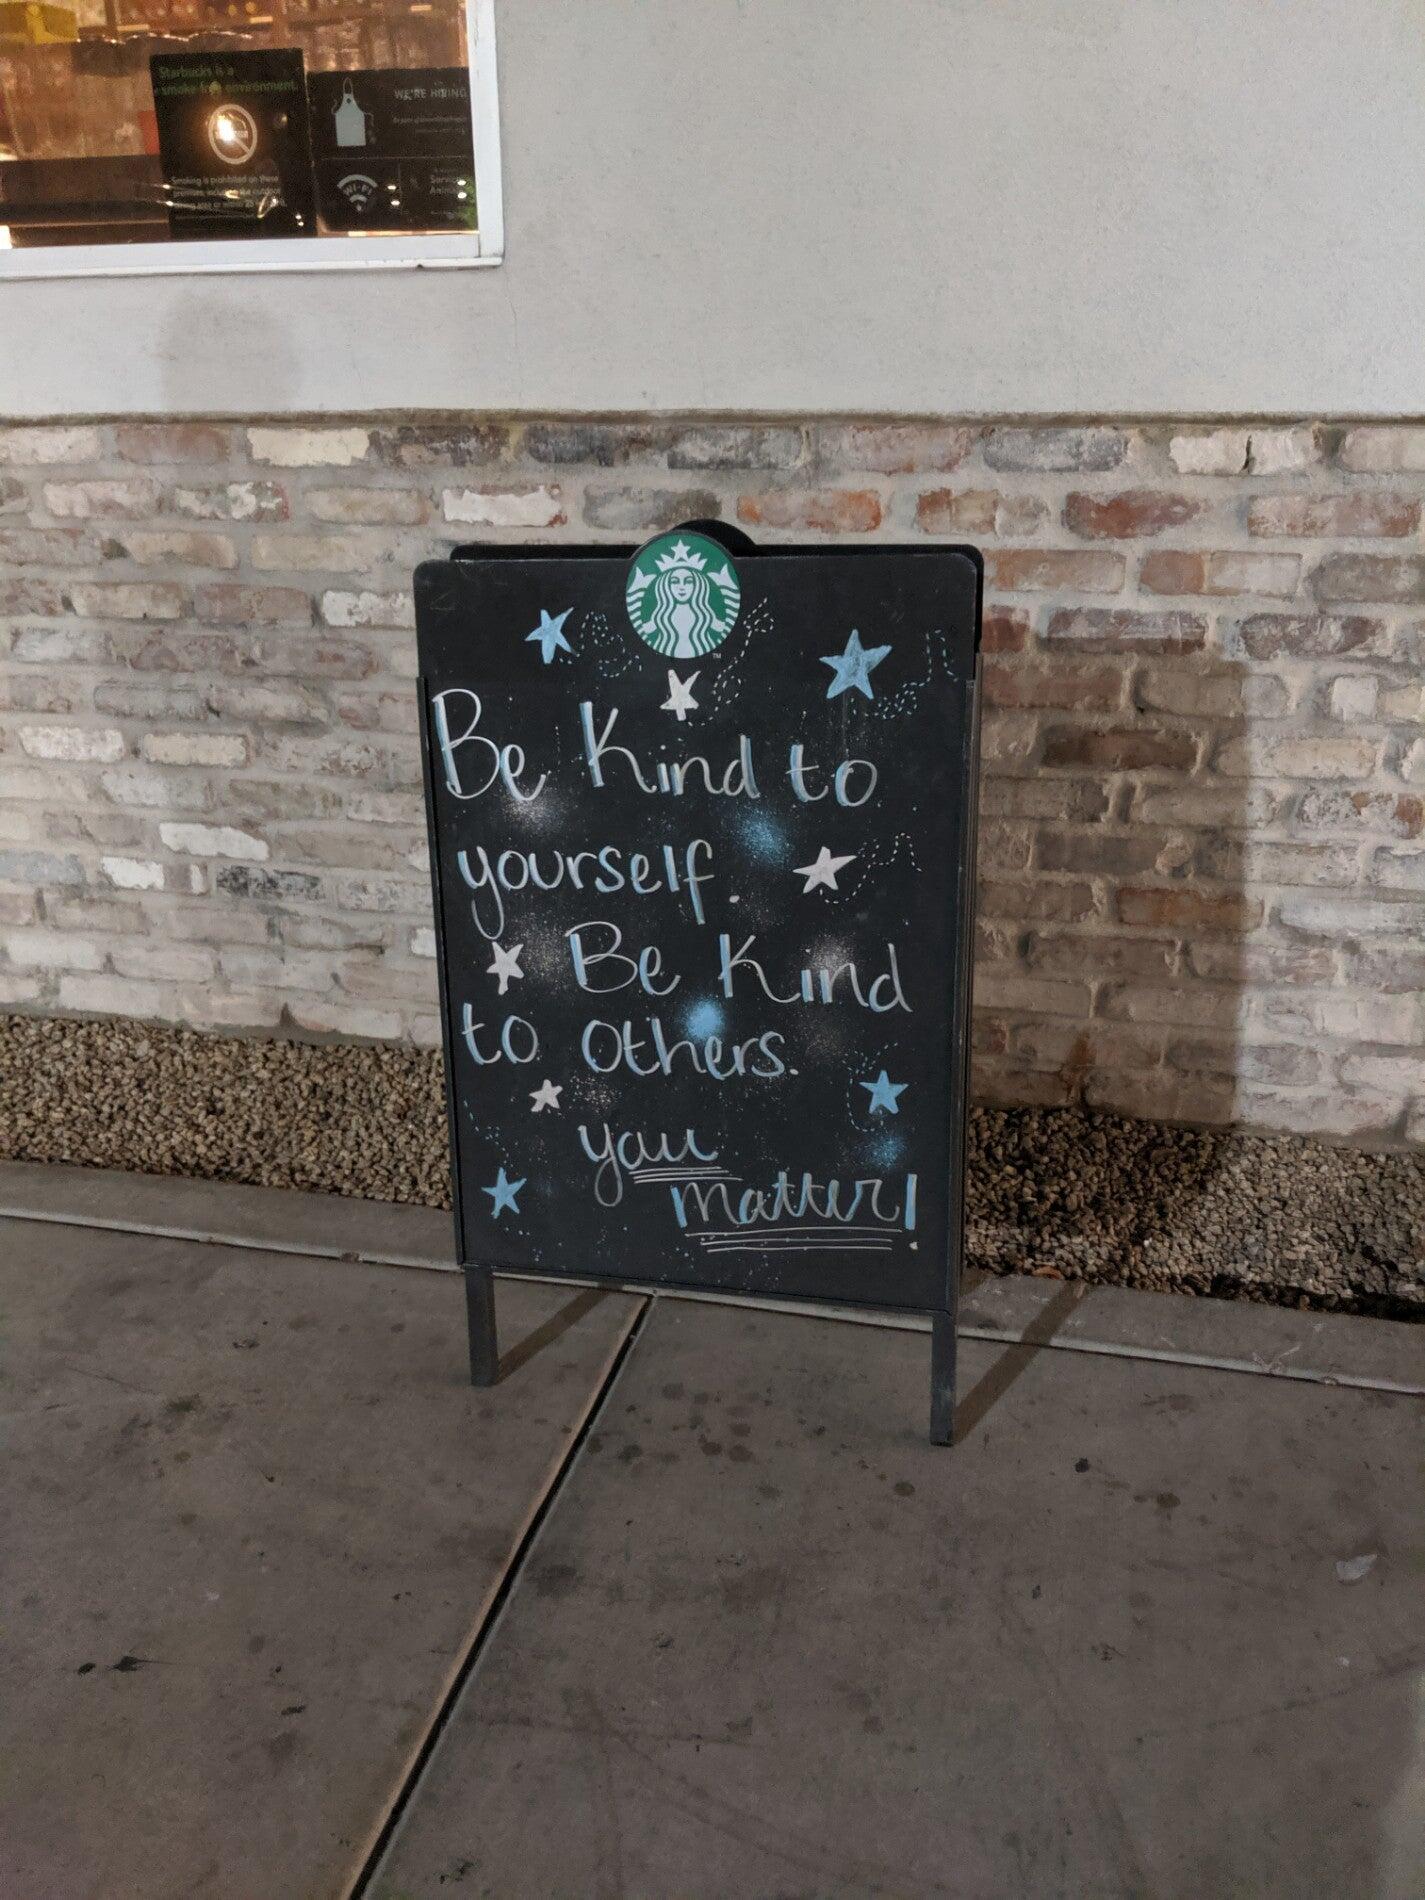 Starbucks is a
smoke-free environment.
Smoking is prohibited on these
premises, including the outdoor
WE'RE HIRING
WI-FI
TM
Be Kind to
yourself.
Be Kind
to others.
you
matter!